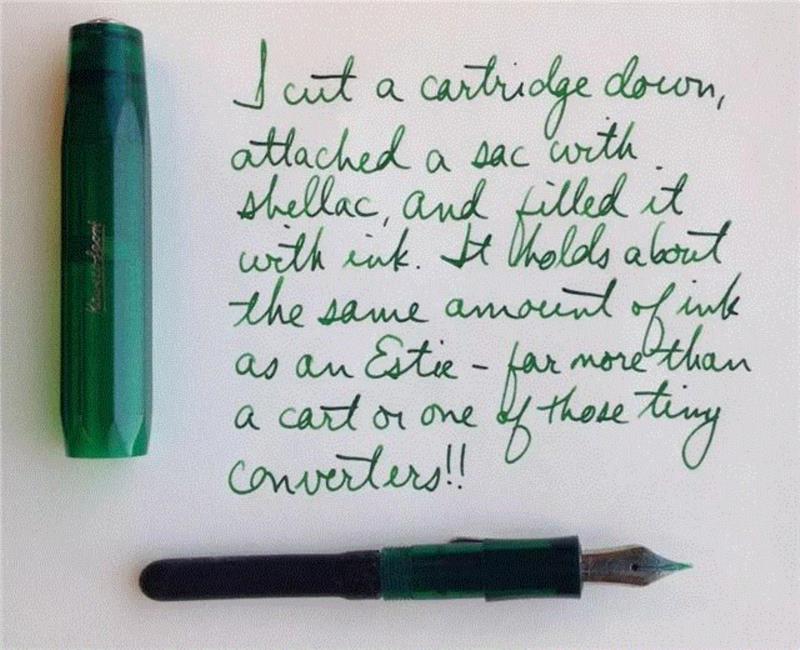 I cut a cartridge down,
attached a sac with
shellac, and filled it
with ink. It holds about
the same amount of ink
as an Estie - far more than
a cart or one of those tiny
converters!!